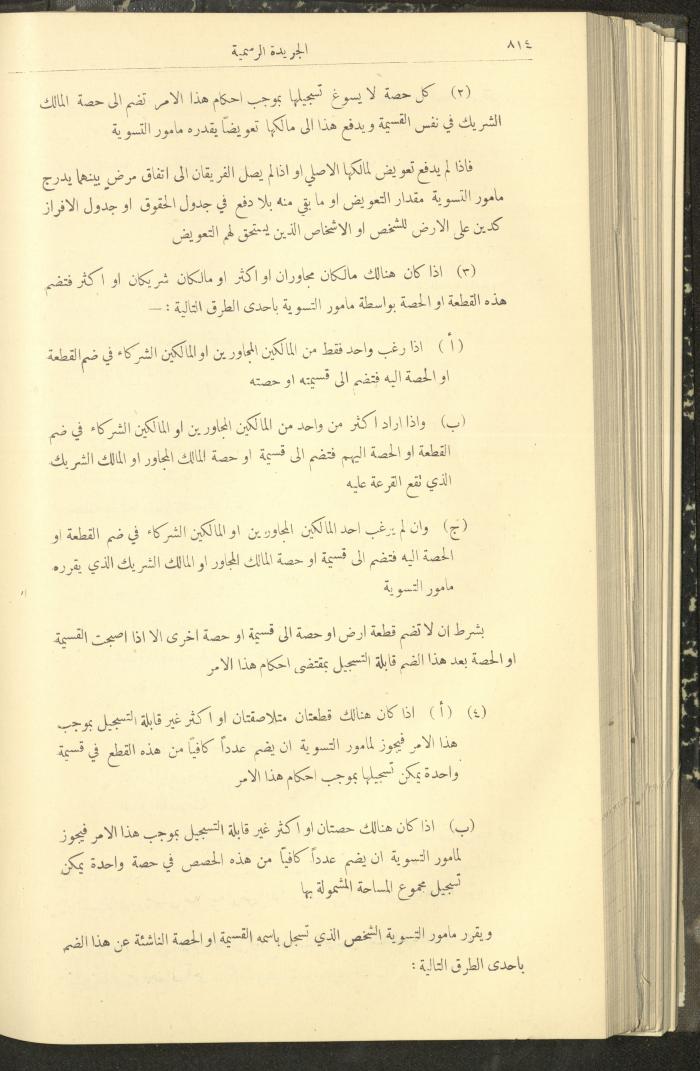 ٨١٤
الجريدة الرسمية
(٢) كل حصة لا يسوغ تسجيلها بموجب احكام هذا الامر تضم الى حصة المالك
الشريك في نفس القسيمة ويدفع هذا الى مالكها تعويضاً يقدره مامور التسوية
فاذا لم يدفع تعويض لمالكها الاصلي او اذا لم يصل الفريقان الى اتفاق مرضٍ بينهما يدرج
مامور التسوية مقدار التعويض او ما بقي منه بلا دفع في جدول الحقوق او جدول الافراز
كدين على الارض للشخص او الاشخاص الذين يستحق لهم التعويض
(٣) اذا كان هنالك مالكان مجاوران او اكثر او مالكان شريكان او اكثر فتضم
هذه القطعة او الحصة بواسطة مامور التسوية باحدى الطرق التالية : —
(أ) اذا رغب واحد فقط من المالكين المجاورين او المالكين الشركاء في ضم القطعة
او الحصة اليه فتضم الى قسيمته او حصته
(ب) واذا اراد اكثر من واحد من المالكين المجاورين او المالكين الشركاء في ضم
القطعة او الحصة اليهم فتضم الى قسيمة او حصة المالك المجاور او المالك الشريك
الذي تقع القرعة عليه
(ج) وان لم يرغب احد المالكين المجاورين او المالكين الشركاء في ضم القطعة او
الحصة اليه فتضم الى قسيمة او حصة المالك المجاور او المالك الشريك الذي يقرره
مامور التسوية
بشرط ان لا تضم قطعة ارض او حصة الى قسيمة او حصة اخرى الا اذا اصبحت القسيمة
او الحصة بعد هذا الضم قابلة التسجيل بمقتضى احكام هذا الامر
(٤) (أ) اذا كان هنالك قطعتان متلاصقتان او اكثر غير قابلة التسجيل بموجب
هذا الامر فيجوز لمامور التسوية ان يضم عدداً كافياً من هذه القطع في قسيمة
واحدة يمكن تسجيلها بموجب احكام هذا الامر
(ب) اذا كان هنالك حصتان او اكثر غير قابلة التسجيل بموجب هذا الامر فيجوز
لمامور التسوية ان يضم عدداً كافياً من هذه الحصص في حصة واحدة يمكن
تسجيل مجموع المساحة المشمولة بها
ويقرر مامور التسوية الشخص الذي تسجل باسمه القسيمة او الحصة الناشئة عن هذا الضم
باحدى الطرق التالية :